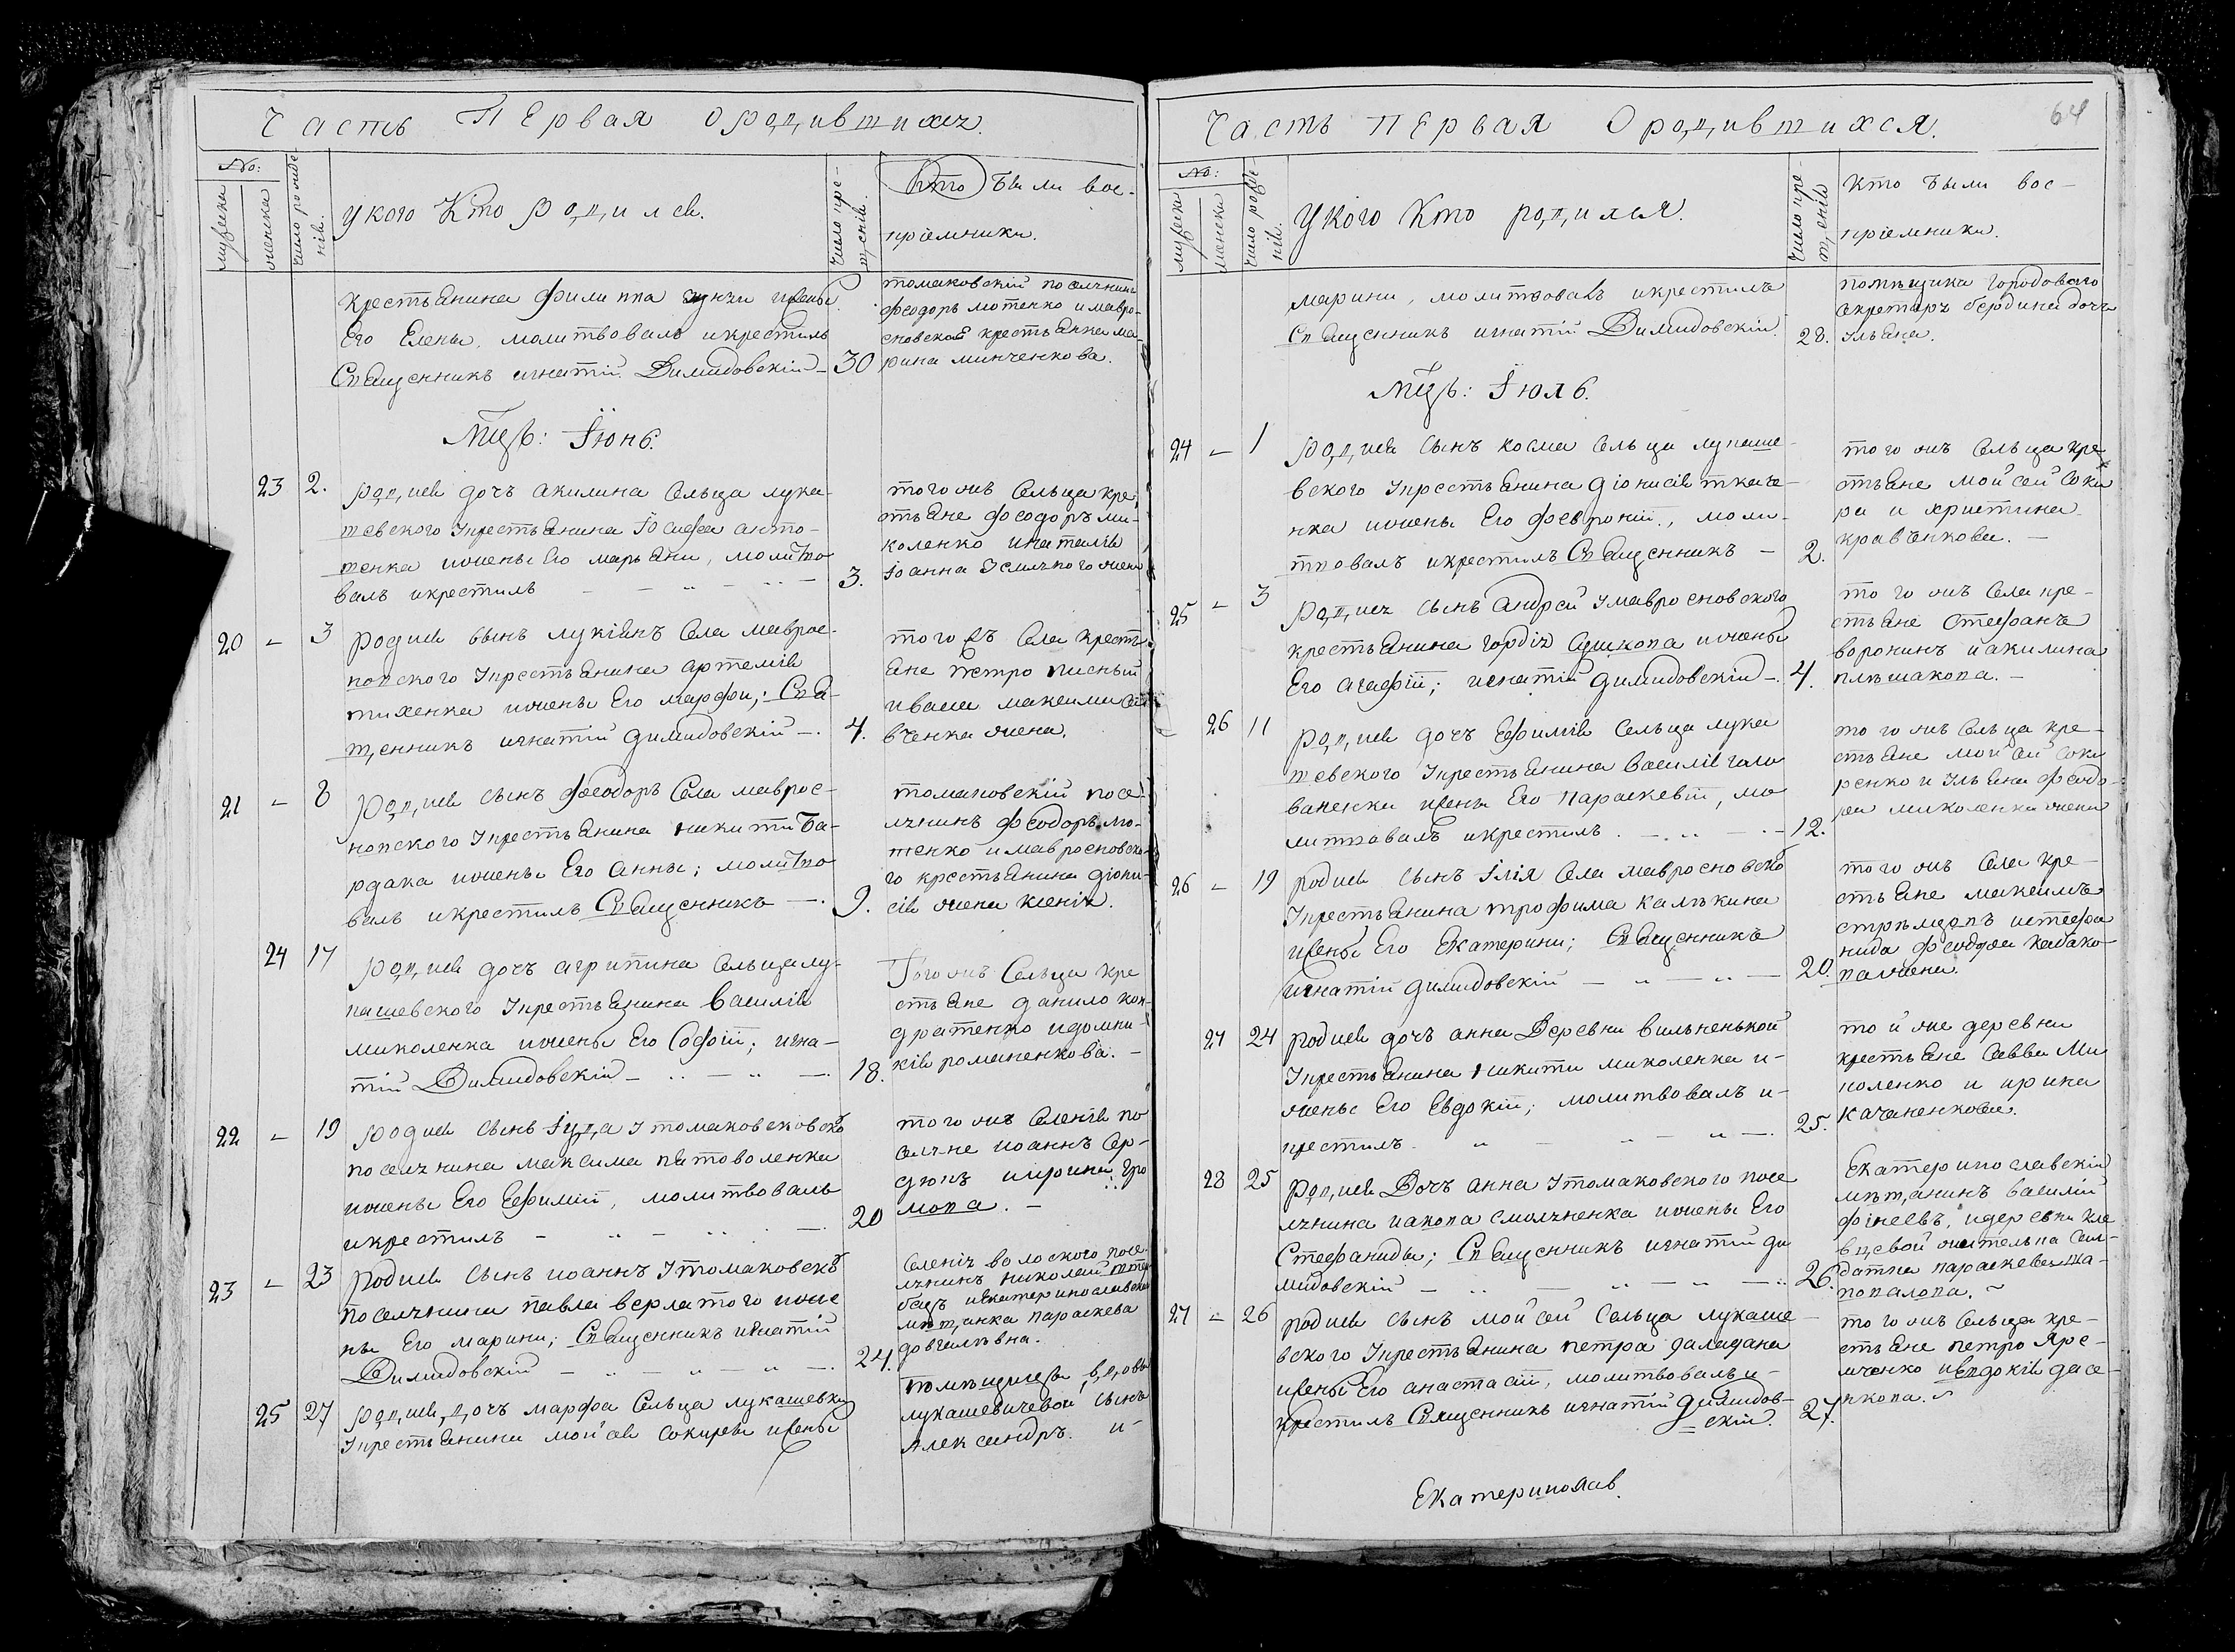 Часть Первая Ородившихся.
No:
мужеска
женска
Число рожде-
нія.
Укого Кто родился.
Число кре-
щенія.
Кто были вос-
пріемники.
крестьянина филиппа ижены
Его Елены, молитвовалъ икрестилъ
Священникъ игнатій Димидовскій — 30
томаковскій поселянинъ
феодоръ мотенко имавро-
сновской крестьянка ма-
рина минченкова.
Мцъ: Іюнь.
23 2. Родися дочъ акилина Сельца лука-
шевского Укрестьянина Іосифа анто-
шенка ижены Его марьяни, молитво
валъ икрестилъ — — „ — — 3.
того жъ Сельца кре
стьяне феодоръ ми-
коленко инаталія
Іоанна жена
20 — 3 родися сынъ лукіянъ Села маврос-
новского Укрестьянина артемія
тихенка ижены Его марфы; Свя-
щенникъ игнатій димидовскій —. 4.
того жъ Села крестъ
яне петро лисный
иваса максима Са
вченка жена.
21 — 8 Родися сынъ феодоръ Села маврос-
новского Укрестьянина никити Ба-
рдака ижены Его анны; молитво
валъ икрестилъ Священникъ —. 9.
томаковскій посе-
лянинъ феодоръ мо-
тенко имавросновско-
го крестьянина діони-
сія жена ксенія.
24 17 Родися дочъ агрипина Сельца лу-
кашевского Укрестьянина василія
миколенка ижены Его Софіи; игна-
тій Димидовскій — „ — „ —. 18.
Того жъ Сельца кре
стьяне данило кон-
дратенко идомни-
кія романенкова. —
22 — 19 родися сынъ Іуда Утомаковсковско
поселянина максима пятоволенка
ижены Его Ефиміи, молитвовалъ
икрестилъ — „ — „ —. 20
того жъ Селенія по
селяне иоаннъ Сер-
дюкъ иирина гро
мова. —
23 — 23 Родися сынъ иоаннъ Утомаковско
поселянина павла верлатого иже
ны Его марини; Священникъ игнатій
Димидовскій — — „ — „ —. 24.
Селенія волоского посе-
лянинъ николай
иЕкатеринославска
мещанка параскева
довгалевна.
25 27 Родися дочъ марфа Сельца лукашевки
Укрестьянина мойсея сокиры ижены
помещицы вдовы
лукашевичевой Сынъ
Александръ и-
64
Часть Первая Ородившихся.
No:
мужеска
женска
Число рожде-
нія.
Укого Кто родился.
Число кре-
щенія
Кто были вос-
пріемники.
марини, молитвовалъ икрестилъ
Священникъ игнатій Димидовскій. 28.
помещика городоваго
секретаря бердина дочъ
Ульяна.
Мцъ: Іюль.
24 — 1 Родися сынъ косма Сельца лукаше-
вского Укрестьянина діонисія ткаче-
нка ижены Его февроніи, моли-
твовалъ икрестилъ Священникъ — 2.
того жъ Сельца кре
стьяне мойсей Соки
ра и христина
кравченкова. —
25 — 3 Родися сынъ андрей Умавросновского
крестьянина гордія Сушкова ижены
Его агафіи; игнатій димидовскій —. 4.
того жъ Села кре-
стьяне Стефанъ
воронинъ иакилина
плешакова. —
26 11 Родися дочъ Ефимія Сельца лука
шевского Укрестьянина василія голо
ваненка ижены Его параскевіи, мо
литвовалъ икрестилъ. — „ — — 12.
того жъ Сельца кре-
стьяне мойсей Соки
ренко и Ульяна феодо-
ра миколенка жена
26 — 19 родися сынъ Ілія Села мавросновско
Укрестьянина трофима Калекина
ижены Его Екатерини; Священникъ
игнатій димидовскій — „ — „ — 20.
того жъ Села кре-
стьяне максимъ
стрельцовъ истефа
нида феодора кабако-
ва жена.
27 24 родися дочъ анна Деревни вильненькой
Укрестьянина никити миколенка и-
жены Его Евдокіи; молитвовалъ и-
крестилъ. „ — „ — „ —. 25.
той же деревни
крестьяне Савва Ми
коленко и ирина
качаненкова.
28 25 Родися Дочъ анна Утомаковского посе
лянина иакова смоляненка ижены Его
Стефаниды; Священникъ игнатій ди
мидовскій — „ — „ — „ — „ 26.
Екатеринославскій
мещанинъ василій
финеевъ, идеревни кле
вцевой жителька Сол-
датка параскева ша-
повалова. ~
27 — 26 родися сынъ мойсей Сельца лукаше-
вского Укрестьянина петра галагана
ижены Его анастасіи, молитвовалъ и-
крестилъ Священникъ игнатій димидов-
скій. 27.
того жъ Сельца кре-
стьяне петро Яре-
мченко иЕвдокія дасе-
нкова. ~
Екатеринослав.